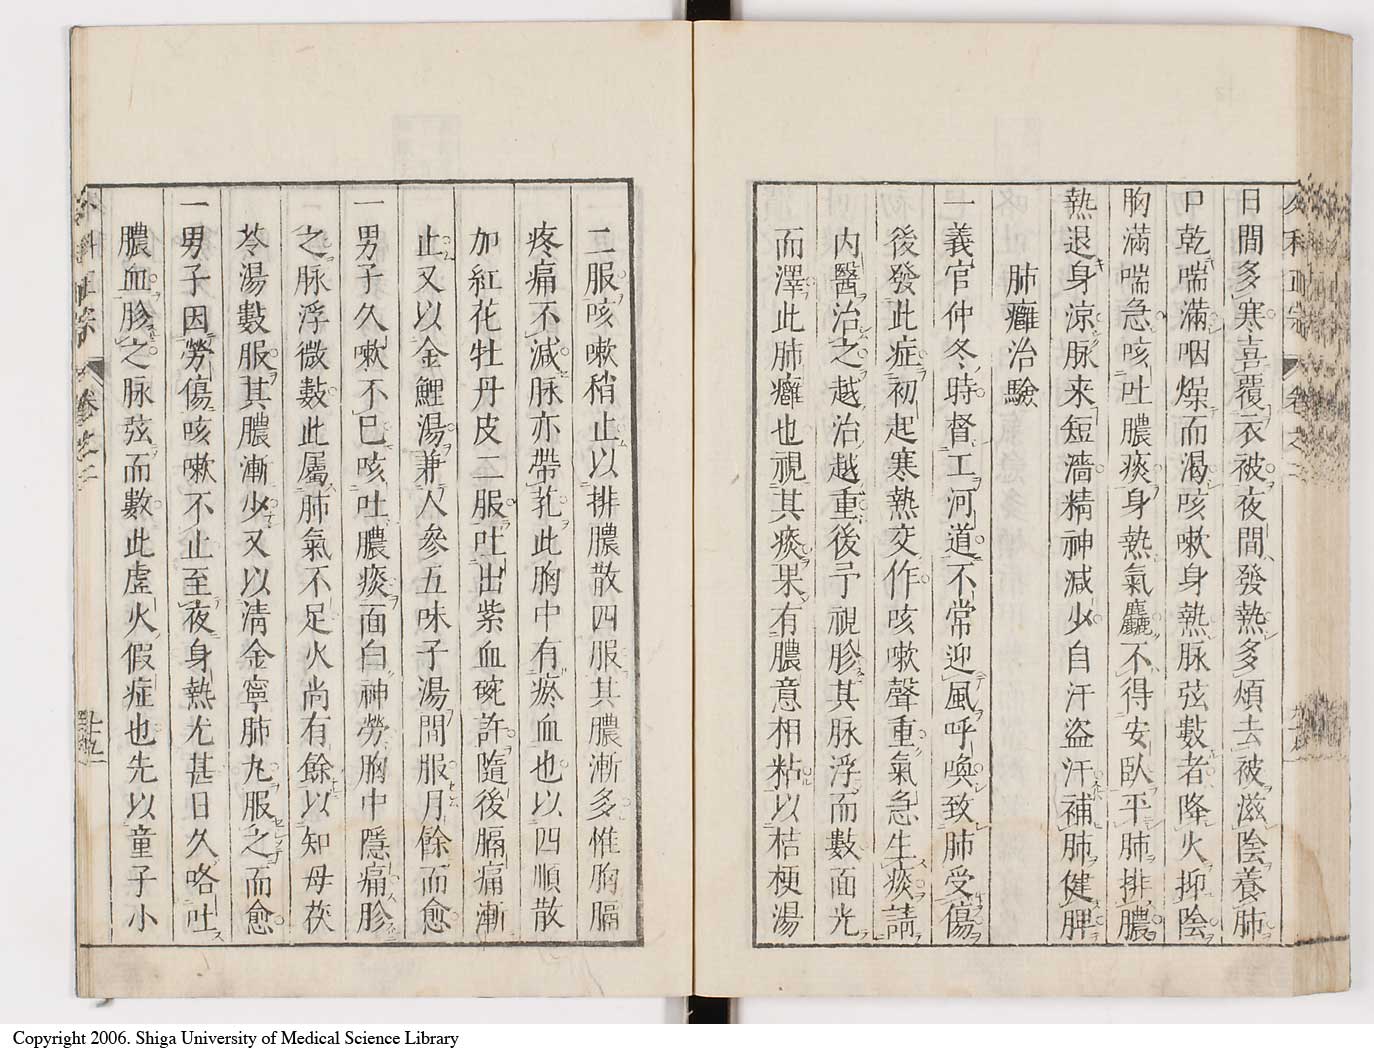 日間多寒喜覆衣被夜間發熱多煩去被滋陰養肺
口乾喘滿咽燥而渴咳嗽身熱脉弦數者降火抑陰
胸滿喘急咳吐膿痰身熱氣麤不得安臥平肺排膿
熱退身涼脉来短濇精神減少自汗盗汗補肺健脾
肺癰治驗
一義官仲冬時督工河道不常迎風呼喚致肺受傷
後發此症初起寒熱交作咳嗽聲重氣急生痰請
内醫治之越治越重後予視胗其脉浮而數面光
而澤此肺癰也視其痰果有膿意相粘以桔梗湯
二服咳嗽稍止以排膿散四服其膿漸多惟胸膈
疼痛不減脉亦帶芤此胸中有瘀血也以四順散
加紅花牡丹皮二服吐出紫血碗許隨後膈痛漸
止又以金鯉湯兼人參五味子湯間服月餘而愈
一男子久嗽不已咳吐膿痰面白神勞胸中隱痛胗
之脉浮微數此屬肺氣不足火尚有餘以知母茯
苓湯數服其膿漸少又以清金寧肺丸服之而愈
一男子因勞傷咳嗽不止至夜身熱尤甚日久咯吐
膿血胗之脉弦而數此虚火假症也先以童子小
Copyright 2006. Shiga University of Medical Science Library